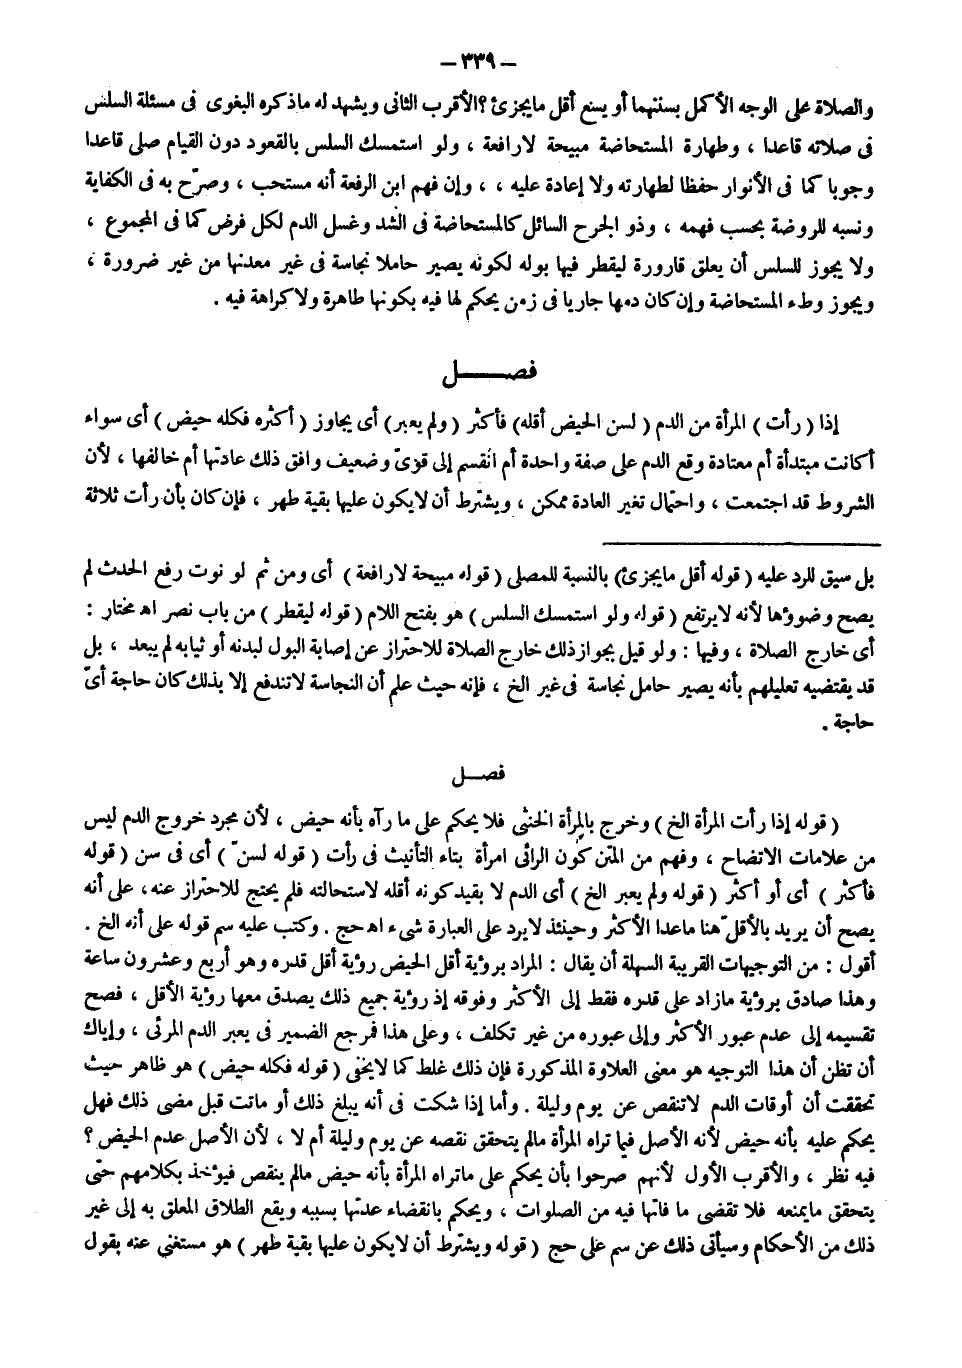 – ٣٣٩ –
والصلاة على الوجه الأكمل بسننهما أو يسع أقل ما يجزئ ؟ الأقرب الثانى ويشهد له ما ذكره البغوى فى مسئلة السلس
فى صلاته قاعدا ، وطهارة المستحاضة مبيحة لارافعة ، ولو استمسك السلس بالقعود دون القيام صلى قاعدا
وجوبا كما فى الأنوار حفظا لطهارته ولا إعادة عليه ، ، وإن فهم ابن الرفعة أنه مستحب ، وصرّح به فى الكفاية
ونسبه للروضة بحسب فهمه ، وذو الجرح السائل كالمستحاضة فى الشد وغسل الدم لكل فرض كما فى المجموع ،
ولا يجوز للسلس أن يعلق قارورة ليقطر فيها بوله لكونه يصير حاملا نجاسة فى غير معدنها من غير ضرورة ،
ويجوز وطء المستحاضة وإن كان دمها جاريا فى زمن يحكم لها فيه بكونها طاهرة ولا كراهة فيه .
فصـــــل
إذا ( رأت ) المرأة من الدم ( لسن الحيض أقله) فأكثر ( ولم يعبر) أى يجاوز ( أكثره فكله حيض ) أى سواء
أكانت مبتدأة أم معتادة وقع الدم على صفة واحدة أم انقسم إلى قوىّ وضعيف وافق ذلك عادتها أم خالفها ، لأن
الشروط قد اجتمعت ، واحتمال تغير العادة ممكن ، ويشترط أن لايكون عليها بقية طهر ، فإن كان بأن رأت ثلاثة
بل سيق للرد عليه ( قوله أقل ما يجزئ) بالنسبة للمصلى ( قوله مبيحة لارافعة ) أى ومن ثم لو نوت رفع الحدث لم
يصح وضوؤها لأنه لايرتفع ( قوله ولو استمسك السلس ) هو بفتح اللام ( قوله ليقطر ) من باب نصر اه مختار :
أى خارج الصلاة ، وفيها : ولو قيل بجواز ذلك خارج الصلاة للاحتراز عن إصابة البول لبدنه أو ثيابه لم يبعد ، بل
قد يقتضيه تعليلهم بأنه يصير حامل نجاسة فى غير الخ ، فإنه حيث علم أن النجاسة لاتندفع إلا بذلك كان حاجة أىّ
حاجة .
فصـــل
( قوله إذا رأت المرأة الخ ) وخرج بالمرأة الخنثى فلا يحكم على ما رآه بأنه حيض ، لأن مجرد خروج الدم ليس
من علامات الاتضاح ، وفهم من المتن كون الرائى امرأة بتاء التأنيث فى رأت ( قوله لسن ّ ) أى فى سن ( قوله
فأكثر ) أى أو أكثر ( قوله ولم يعبر الخ ) أى الدم لا بقيد كونه أقله لاستحالته فلم يحتج للاحتراز عنه ، على أنه
يصح أن يريد بالأقلّ هنا ماعدا الأكثر وحينئذ لايرد على العبارة شىء اه حج . وكتب عليه سم قوله على أنه الخ .
أقول : من التوجيهات القريبة السهلة أن يقال : المراد برؤية أقل الحيض رؤية أقل قدره وهو أربع وعشرون ساعة
وهذا صادق برؤية مازاد على قدره فقط إلى الأكثر وفوقه إذ رؤية جميع ذلك يصدق معها رؤية الأقل ، فصح
تقسيمه إلى عدم عبور الأكثر وإلى عبوره من غير تكلف ، وعلى هذا فمرجع الضمير فى يعبر الدم المرئى ، وإياك
أن تظن أن هذا التوجيه هو معنى العلاوة المذكورة فإن ذلك غلط كما لايخفى ( قوله فكله حيض ) هو ظاهر حيث
تحققت أن أوقات الدم لاتنقص عن يوم وليلة . وأما إذا شكت فى أنه يبلغ ذلك أو ماتت قبل مضى ذلك فهل
يحكم عليه بأنه حيض لأنه الأصل فيما تراه المرأة مالم يتحقق نقصه عن يوم وليلة أم لا ، لأن الأصل عدم الحيض ؟
فيه نظر ، والأقرب الأول لأنهم صرحوا بأن يحكم على ماتراه المرأة بأنه حيض مالم ينقص فيؤخذ بكلامهم حتى
يتحقق مايمنعه فلا تقضى ما فاتها فيه من الصلوات ، ويحكم بانقضاء عدتها بسببه ويقع الطلاق المعلق به إلى غير
ذلك من الأحكام وسيأتى ذلك عن سم على حج ( قوله ويشترط أن لايكون عليها بقية طهر ) هو مستغنى عنه بقول